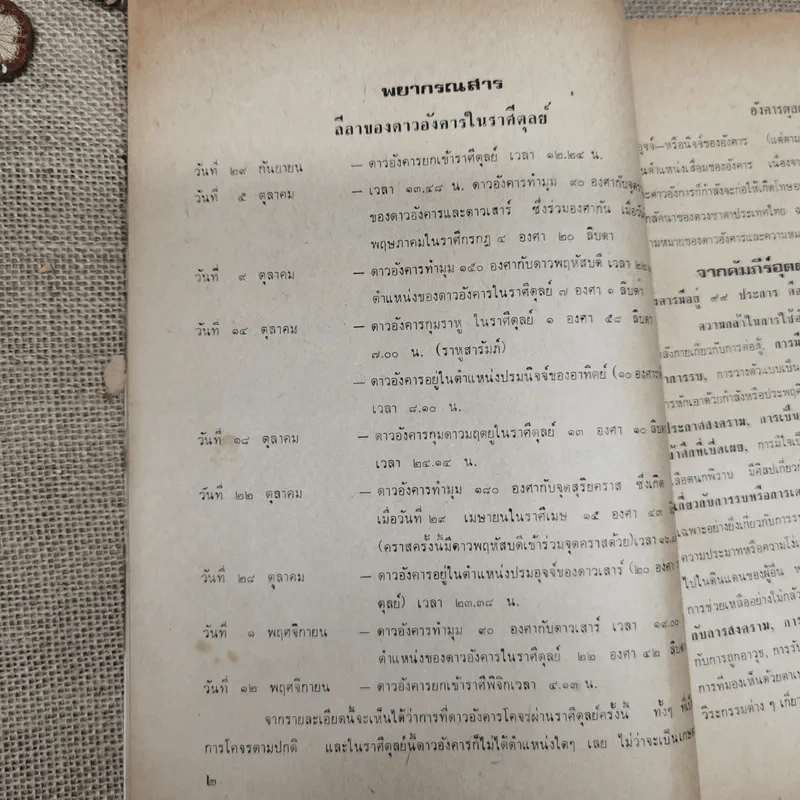 พยากรณสาร
ลีลาของดาวอังคารในราศีตุลย์
วันที่ ๒๙ กันยายน – ดาวอังคารยกเข้าราศีตุลย์ เวลา ๑๒.๒๔ น.
วันที่ ๕ ตุลาคม – เวลา ๑๓.๔๘ น. ดาวอังคารทำมุม ๙๐ องศากับจุด
ของดาวอังคารและดาวเสาร์ ซึ่งร่วมองศากัน เมื่อวัน
พฤษภาคมในราศีกรกฎ ๔ องศา ๒๐ ลิบดา
วันที่ ๙ ตุลาคม – ดาวอังคารทำมุม ๑๕๐ องศากับดาวพฤหัสบดี เวลา ๒๒.
ตำแหน่งของดาวอังคารในราศีตุลย์ ๗ องศา ๑ ลิบดา
วันที่ ๑๔ ตุลาคม – ดาวอังคารกุมราหู ในราศีตุลย์ ๑ องศา ๕๘ ลิบดา
๗.๐๐ น. (ราหูสารัมภ์)
– ดาวอังคารอยู่ในตำแหน่งปรมนิจจ์ของอาทิตย์ (๑๐ องศา
เวลา ๘.๑๐ น.
วันที่ ๑๘ ตุลาคม – ดาวอังคารกุมดาวมฤตยูในราศีตุลย์ ๑๓ องศา ๑๐ ลิบดา
เวลา ๒๔.๑๔ น.
วันที่ ๒๒ ตุลาคม – ดาวอังคารทำมุม ๑๘๐ องศากับจุดสุริยคราส ซึ่งเกิด
เมื่อวันที่ ๒๙ เมษายนในราศีเมษ ๑๕ องศา ๔๓
(คราสครั้งนี้มีดาวพฤหัสบดีเข้าร่วมจุดคราสด้วย)เวลา ๑๖.
วันที่ ๒๘ ตุลาคม – ดาวอังคารอยู่ในตำแหน่งปรมอุจจ์ของดาวเสาร์ (๒๐ องศา
ตุลย์) เวลา ๒๓.๓๘ น.
วันที่ ๑ พฤศจิกายน – ดาวอังคารทำมุม ๙๐ องศากับดาวเสาร์ เวลา ๑๙.๐๐
ตำแหน่งของดาวอังคารในราศีตุลย์ ๒๒ องศา ๔๒ ลิบดา
วันที่ ๑๒ พฤศจิกายน – ดาวอังคารยกเข้าราศีพิจิกเวลา ๔.๑๓ น.
จากรายละเอียดนี้จะเห็นได้ว่าการที่ดาวอังคารโคจรผ่านราศีตุลย์ครั้งนี้ ทั้งๆ ที่
การโคจรตามปกติ และในราศีตุลย์นี้ดาวอังคารก็ไม่ได้ตำแหน่งใดๆ เลย ไม่ว่าจะเป็นเกษตร
๒
อังคารตุลย์
อุจจ์–หรือนิจจ์ของอังคาร (แต่ตาม
นตำแหน่งเสื่อมของอังคาร เนื่องจา
ะดาวอังคารก็กำลังจะก่อให้เกิดโทษอ
กลัคนาของดวงชาตาประเทศไทย
วามหมายของดาวอังคารและความหม
จากคัมภีร์อุตต
งคารมีอยู่ ๙๔ ประการ คือ
ความกล้าในการใช้อ
ลังกายเกี่ยวกับการต่อสู้, การมี
ทำการรบ, การวางตัวแบบเป็น
ารหักเอาด้วยกำลังหรือประพฤติ
ประกาศสงคราม, การเป็น
ข้าศึกที่เปิดเผย, การมีใจเป็
เลือดนกพิราบ มีศิลปเกี่ยว
เกี่ยวกับการรบหรือการเด
เฉพาะอย่างยิ่งเกี่ยวกับการร
ความประมาทหรือความโง่เ
ไปในดินแดนของผู้อื่น
การช่วยเหลืออย่างไม่กลัว
กับการสงคราม, การ
กับการถูกอาวุธ, การรับ
การที่มองเห็นด้วยตาเ
วิระกรรมต่าง ๆ เกี่ยว